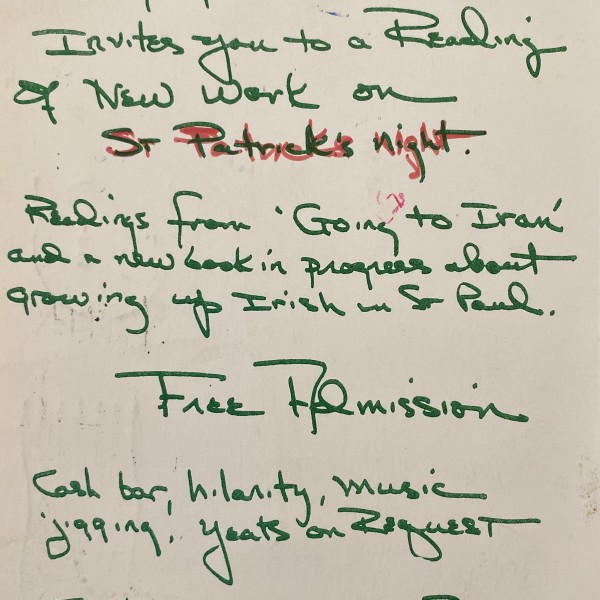 Invites you to a Reading
Of New Work on
St Patrick's night.
Readings from 'Going to Iran'
and a new book in progress about
growing up Irish in St Paul.
Free Admission
Cash bar, hilarity, music
jigging, Yeats on Request